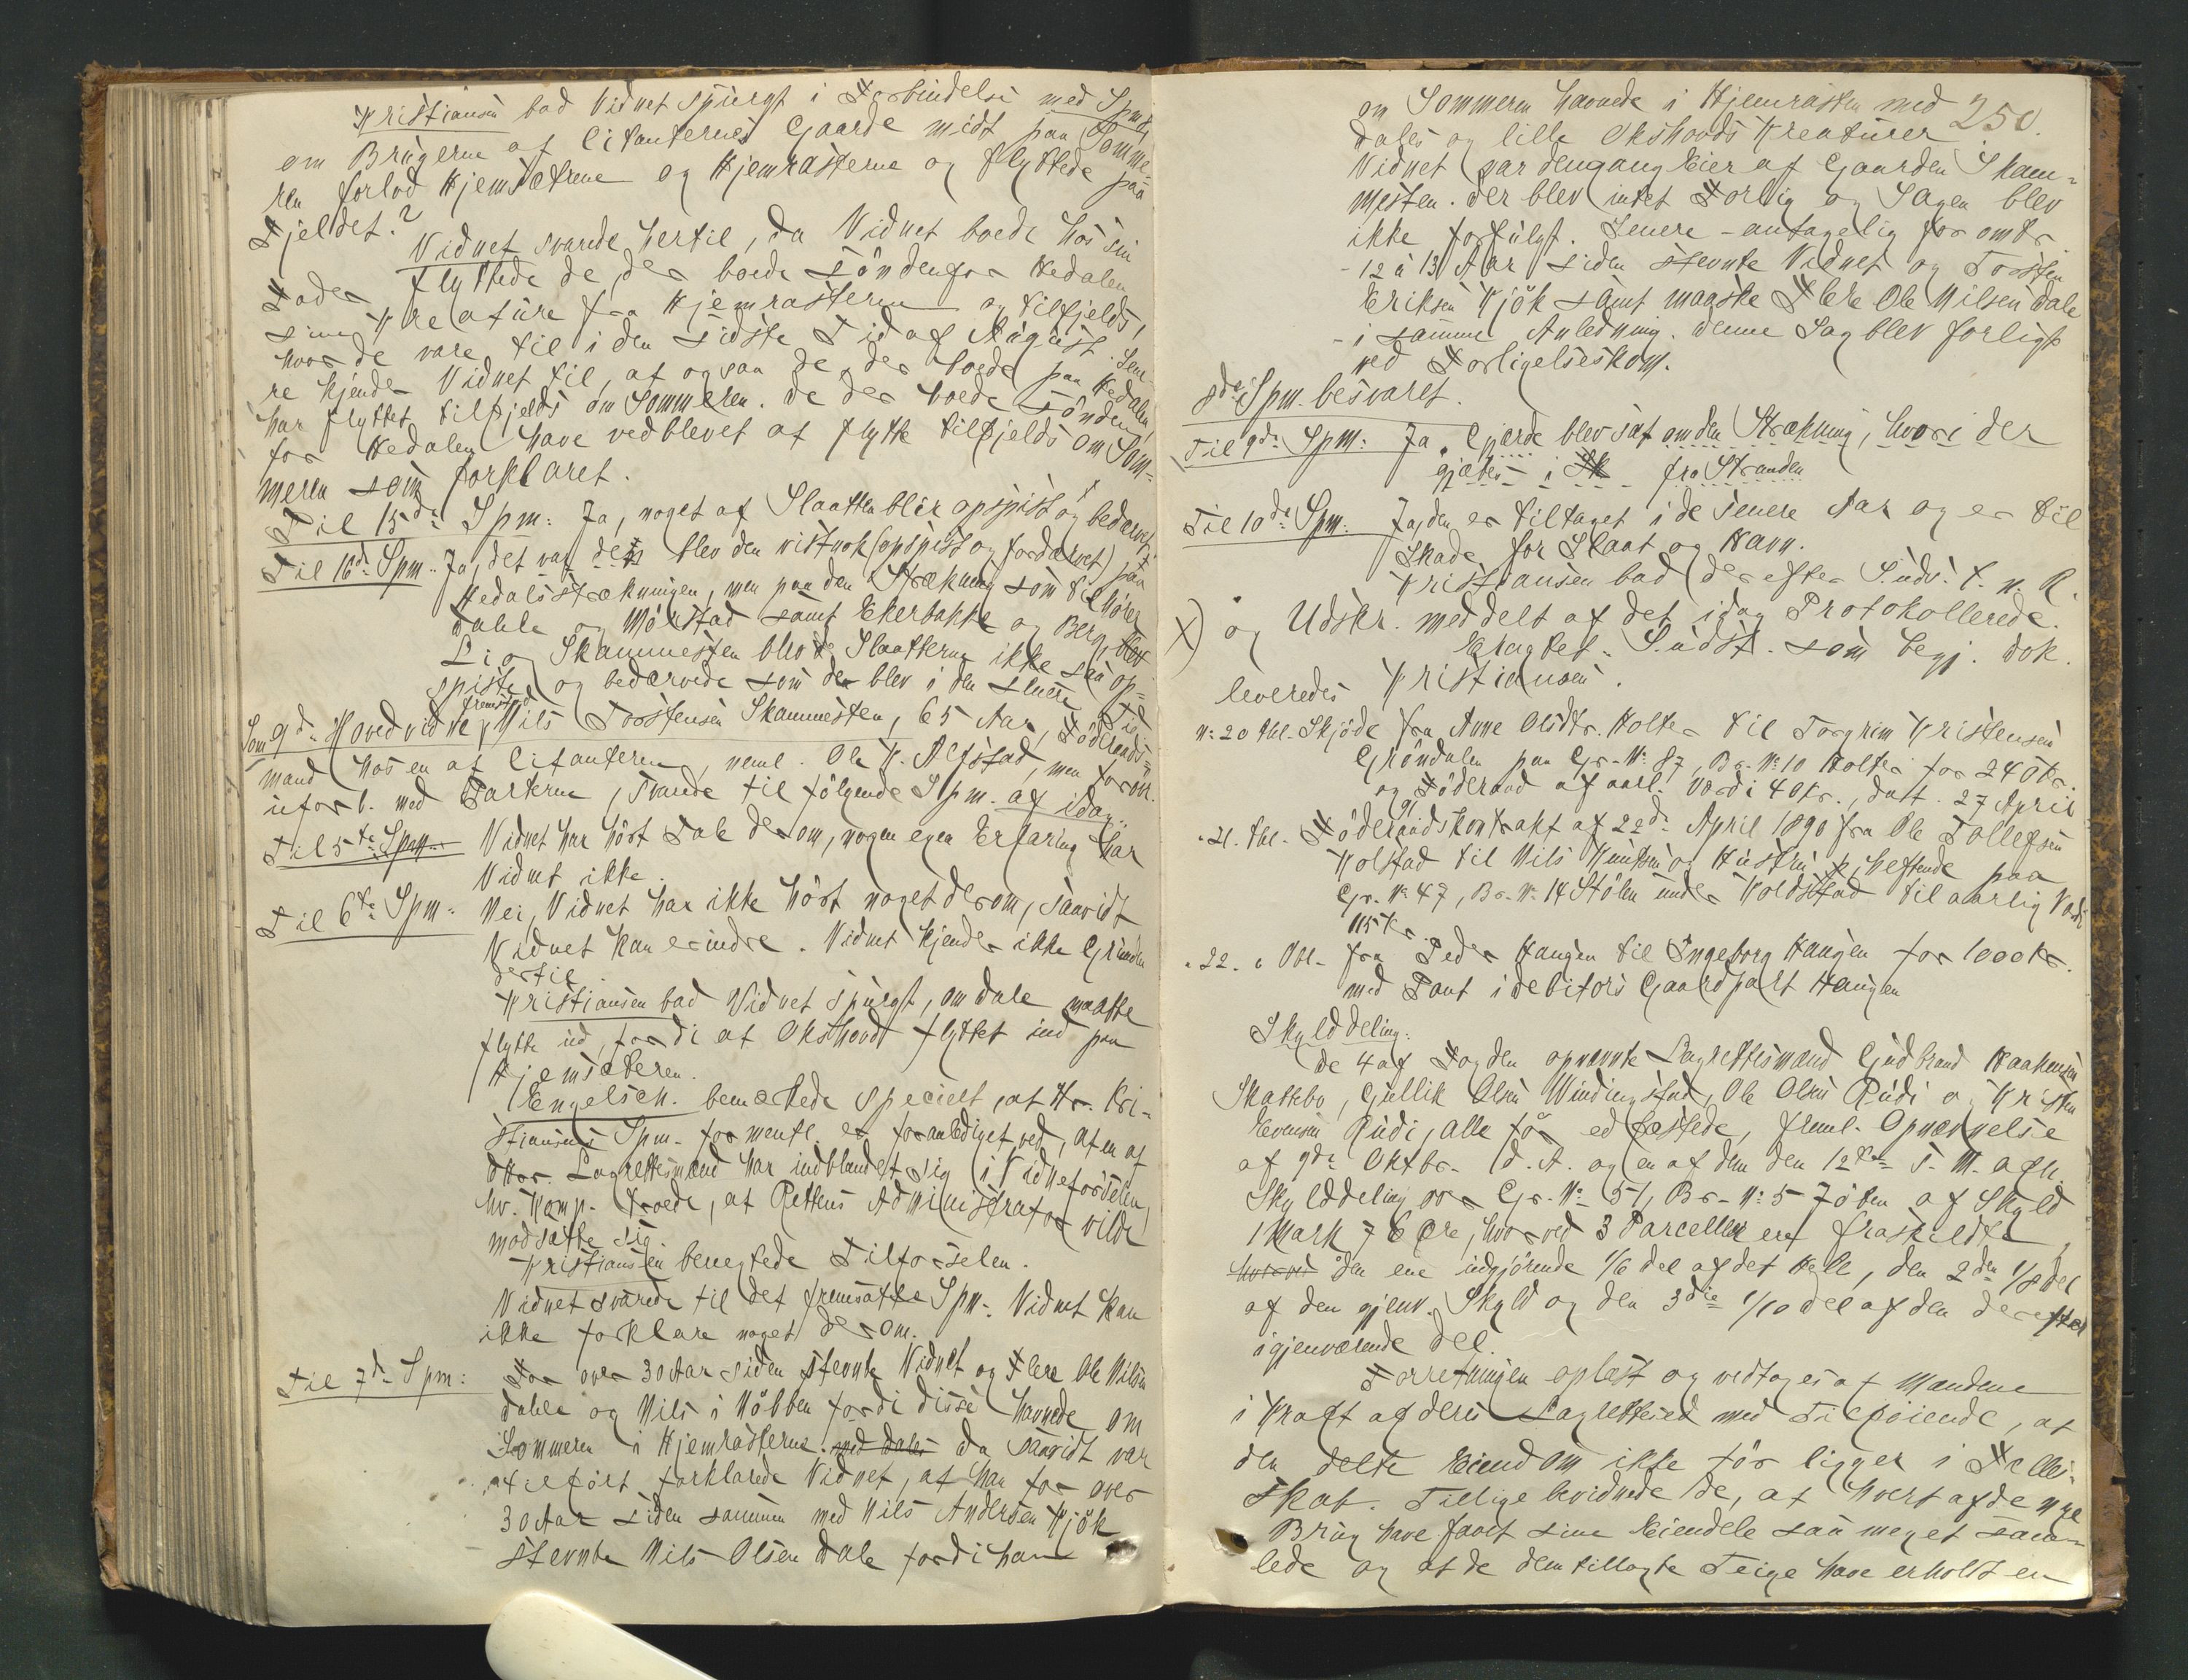 Kristiansen bad Vidnet spurgt i Forbindelse med Spm
om Brugerne af Citanternes Gaarde midt paa Somme-
ren forlod Hjemsætrene og Hjemrasterne og flyttede paa
Fjeldet?
Vidnet svarede hertil, da Vidnet boede hos sin
Fader flyttede de, der boede söndenfor Hedalen
sine Kreature fra Hjemrasterne og tilfjelds,
hvor de vare til i den sidste Tid af August. Sene-
re kjender Vidnet til, at ogsaa de, der boede paa Hedalen,
har flyttet tilfjelds om Sommeren. De der boede sönden-
for Hedalen have vedblevet at flytte tilfjelds om Som-
meren som forklaret.
Til 15de Spm: Ja, noget af Slaatten blev opspist og bedærvet
Til 16de Spm: Ja, det var blev den vistnok (opspist og fordærvet) paa
Hedalsstrækningen, men paa den Strækning som tilhörer
Dahle og Mölstad samt Ekerbakke og Berg,
Li og Skammesten blev Slaatterne ikke saa op-
spiste og bedærvede som der blev i den senere Tid
Som 9de Hovedvidne fremstod Nils Torstensen Skammesten, 65 Aar, Föderaads-
mand hos en af Citanterne, neml. Ole K. Alfstad, men forøvr.
uforb. med Parterne, svarede til fölgende Spm. af idag:
Til 5te Spm: Vidnet har hört Tale derom, nogen egen Erfaring har
Vidnet ikke.
Til 6te Spm: Nei, Vidnet har ikke hört noget derom, saavidt
Vidnet kan erindre. Vidnet kjender ikke Grunden
dertil.
Kristiansen bad Vidnet spurgt, om Dale maatte
flytte ud, fordi at Okshovd flyttet ind paa
Hjemsæteren.
Engelsch. bemærkede specielt, at Hr. Kri-
stiansens Spm. formentl. er foranlediget ved, at en af
dHrr. Lagrettesmænd har indblandet sig i Vidneförselen,
hv. Komp. troede, at Rettens Administrator vilde
modsætte sig.
Kristiansen benegtede Tilförselen.
Vidnet svarede til det fremsatte Spm: Vidnet kan
ikke forklare noget derom.
Til 7de Spm: For over 30 Aar siden stevnte Vidnet og Flere Ole Nilsen
Dahle og Nils i Nöbben fordi disse havnede om
Sommeren i Hjemrasterne. med Dales da saavidt var
tilfört forklarede Vidnet, at han for over
30 Aar siden sammen med Nils Andersen Kjök
stevnte Nils Olsen Dale fordi han
250.
om Sommeren havnede i Hjemrasten med
Dales og lille Okshovds Kreaturer
Vidnet var dengang Eier af Gaarden Skam-
mesten. Der blev intet Forlig og Sagen blev
ikke forfulgt. Senere - antagelig for omtr.
- 12 à 13 Aar siden stevnte Vidnet og Torsten
Eriksen Kjök samt maaske Flere Ole Nilsen Dale
- i samme Anledning. Denne Sag blev forligt
ved Forligelseskom.
8de Spm. besvaret.
Til 9de Spm: Ja, Gjærde blev sat om den Strækning, hvori der
gjætes i fra Stranden
Til 10de Spm: Ja, den er tiltaget i de senere Aar og er til
Skade for Slaat og Havn.
Kristiansen bad derefter S. uds. t. n. R.
X) og Udskr. meddelt af det idag Protokollerede.
Eragtet. S. udst. som begj. Dok.
leveredes Kristiansen.
No 20 tbl. Skjöde fra Anne Olsdtr. Holter til Torgrim Kristensen
Gröndalen paa Gr. No 87, Br. No 10 Holter for 240 Kr.
og Föderaad af aarl. Værdi 40 Kr., dat. 27 April 91
" 21. tbl. Föderaadskontrakt af 22de April 1890 fra Ole Tollefsen
Kolstad til Nils Knutsen og Hustru heftende paa
Gr. No 47, Br. No 14 Stölen under Koldstad til aarlig Værdi
115 Kr.
" 22. " Obl. fra Peder Haugen til Ingeborg Haugen for 1000 Kr.
med Pant i debitors Gaardpart Haugen
Skylddeling:
De 4 af Fogden opnævnte Lagrettesmænd Gudbrand Haakensen
Skattebo, Gullik Olsen Windingstad, Ole Olsen Rudi og Kristen
Evensen Rudi, alle för edfæstede, fleml. Opnævnelse
af 9de Oktbr. d. A. og en af dem den 12te s. M. afh.
Skylddeling over Gr. No 51, Br. No 5 Jöten af Skyld
1 Mark 76 Øre, hvorved 3 Parceller ere fraskildte,
hvorved den ene udgjörende 1/6 del af det Hele, den 2den 1/8 del
af den gjenv. Skyld og den 3die 1/10 del af den derefter
igjenværende Del.
Forretningen oplæst og vedtoges af Mændene
i Kraft af deres Lagrettesed med Tilföiende, at
den delte Eiendom ikke för ligger i Fælles-
skab. Tillige bevidnede de, at hvert af de nye
Brug have faaet sine Eiendele saa meget sam-
lede og at de dem tillagte Teige have erholdt en